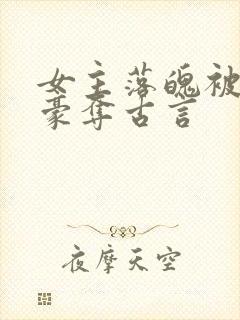 女主落魄被
豪夺古言
夜摩天空